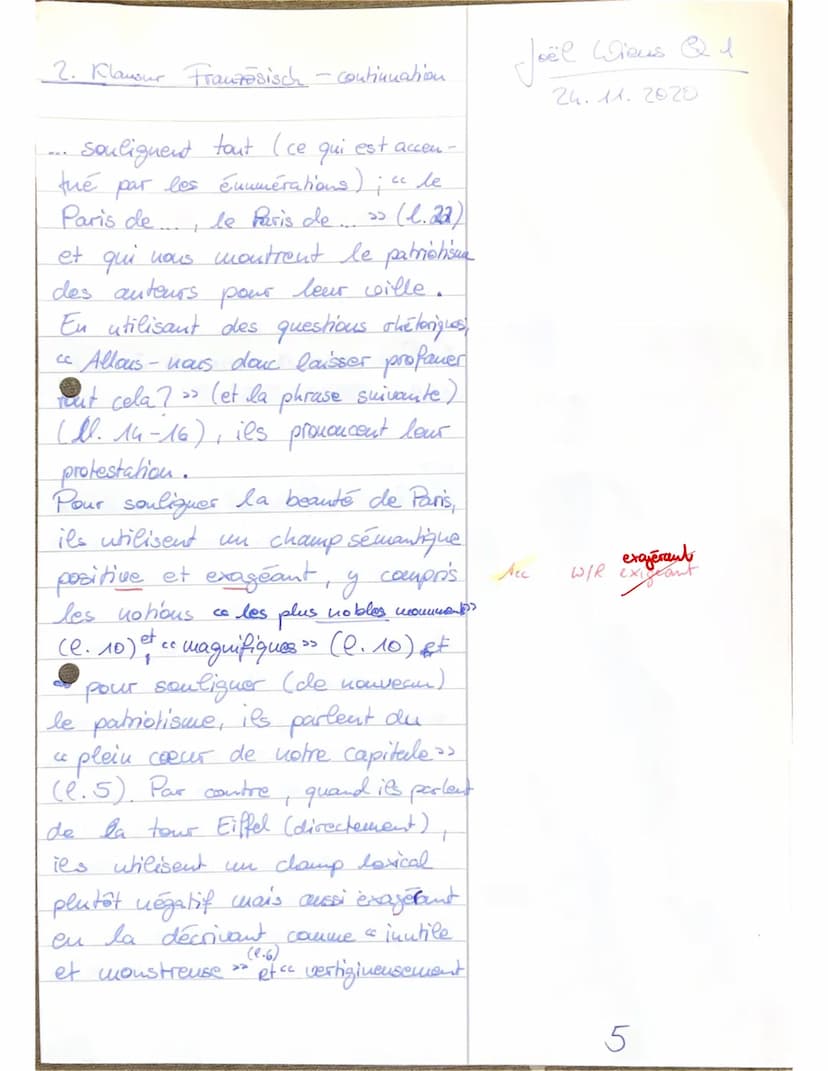 2. Klausur Französisch – continuation
Joël Wiens Q1
24.11.2020
... soulignent tout (ce qui est accen-
tué par les énumérations) ; « le
Paris de ..., le Paris de ... » (l. 22)
et qui nous montrent le patriotisme
des auteurs pour leur ville.
En utilisant des questions rhétoriques,
« Allons-nous donc laisser profaner
tout cela? » (et la phrase suivante)
(ll. 14-16), ils prononcent leur
protestation.
Pour souligner la beauté de Paris,
ils utilisent un champ sémantique
positive et exagéant, y compris
Acc W/R exigeant
exagérant
les notions « les plus nobles monuments»
(l. 10) et « magnifiques » (l. 10) et
pour souligner (de nouveau)
le patriotisme, ils parlent du
« plein cœur de notre capitale »
(l. 5). Par contre, quand ils parlent
de la tour Eiffel (directement),
ils utilisent un champ lexical
plutôt négatif mais aussi exagérant
en la décrivant comme « inutile
et monstreuse » (l.6) et « vertigineusement
5